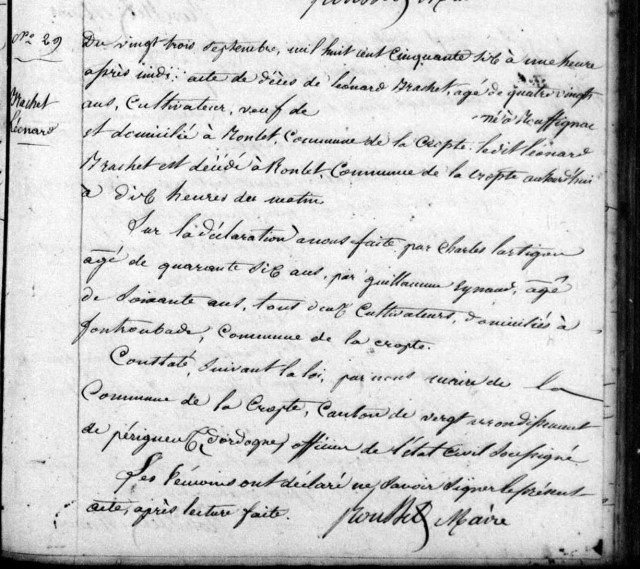 No 29
Brachet
Léonard
Du vingt trois septembre, mil huit cent cinquante six à une heure
après midi: acte de décès de Léonard Brachet, agé de quatre vingts
ans, Cultivateur, veuf de
né à Rouffignac
et domicilié à Bontet, Commune de la Cropte. ledit Léonard
Brachet est décédé à Bontet Commune de la cropte aujourd'hui
à dix heures du matin
Sur la déclaration à nous faite par Charles Lartigue
agé de quarante six ans, par guillaume Eynaud, agé
de soixante ans, tout deux Cultivateurs, domiciliés à
fontroubade, Commune de la cropte.
Constaté, suivant la loi, par nous maire de la
Commune de la Cropte, Canton de vergt arrondissement
de périgueux (dordogne) officier de l'état civil soussigné
Les témoins ont déclaré ne savoir signer le présent
acte, après lecture faite. Rousset Maire